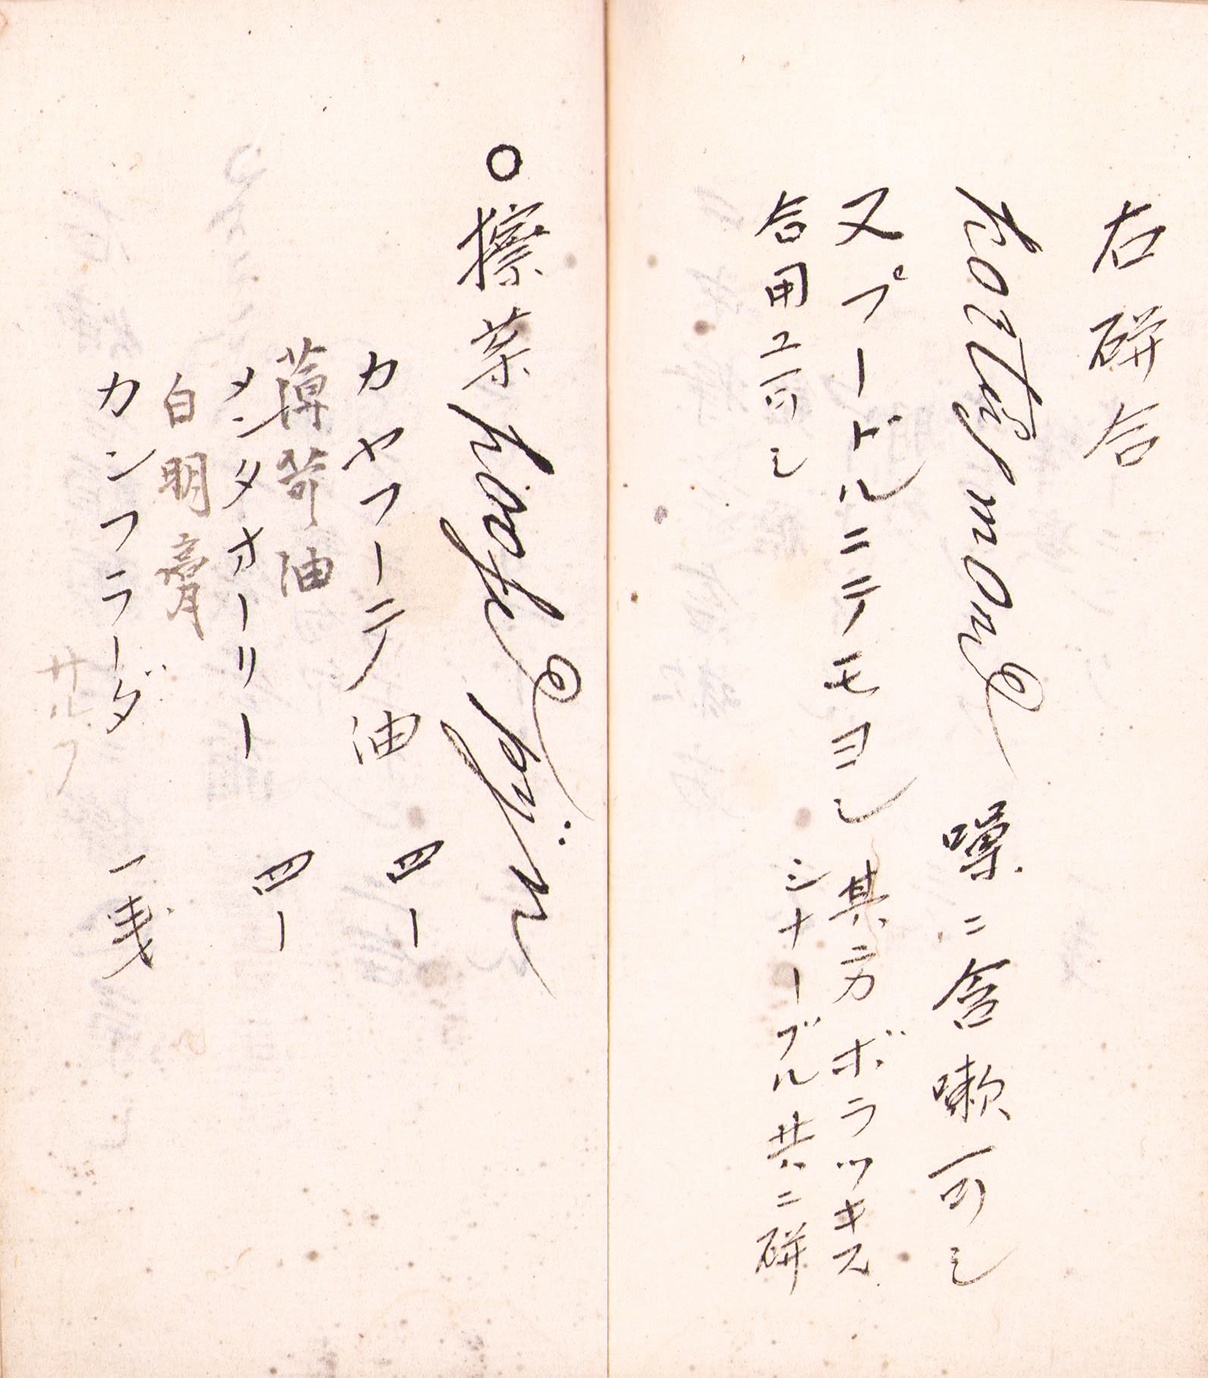 右研合
噀ニ含嗽可シ
又プードルニテモヨシ其方ボラツキス
シナーブル共ニ研
合用ユ可シ
○擦薬 hoofe pijn
カヤフーテ油 四一
薄荷油
メンタオーリー 四一
白明膏
カンフラーダ 一戔
サルフ